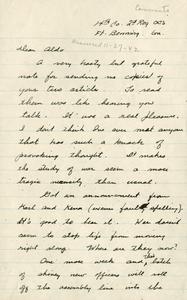 Comments
14th Co. 2d Reg OCS
Ft. Benning, Ga.
Answered 11-27-42
Dear Aldo
A very hasty but grateful
note for sending me copies of
your two articles. To read
them was like hearing you
talk. It was a real pleasure.
I don't think I've ever met anyone
that has such a knack of
provoking thought. It makes
the study of war seem a more
tragic necessity than usual.
Got an announcement from
Karl and Keva (wrong fault spelling).
It's good to hear it. War doesn't
seem to stop life from moving
right along. Where are they now?
One more week and this batch
of shiney new officers will roll
off the assembly line into the